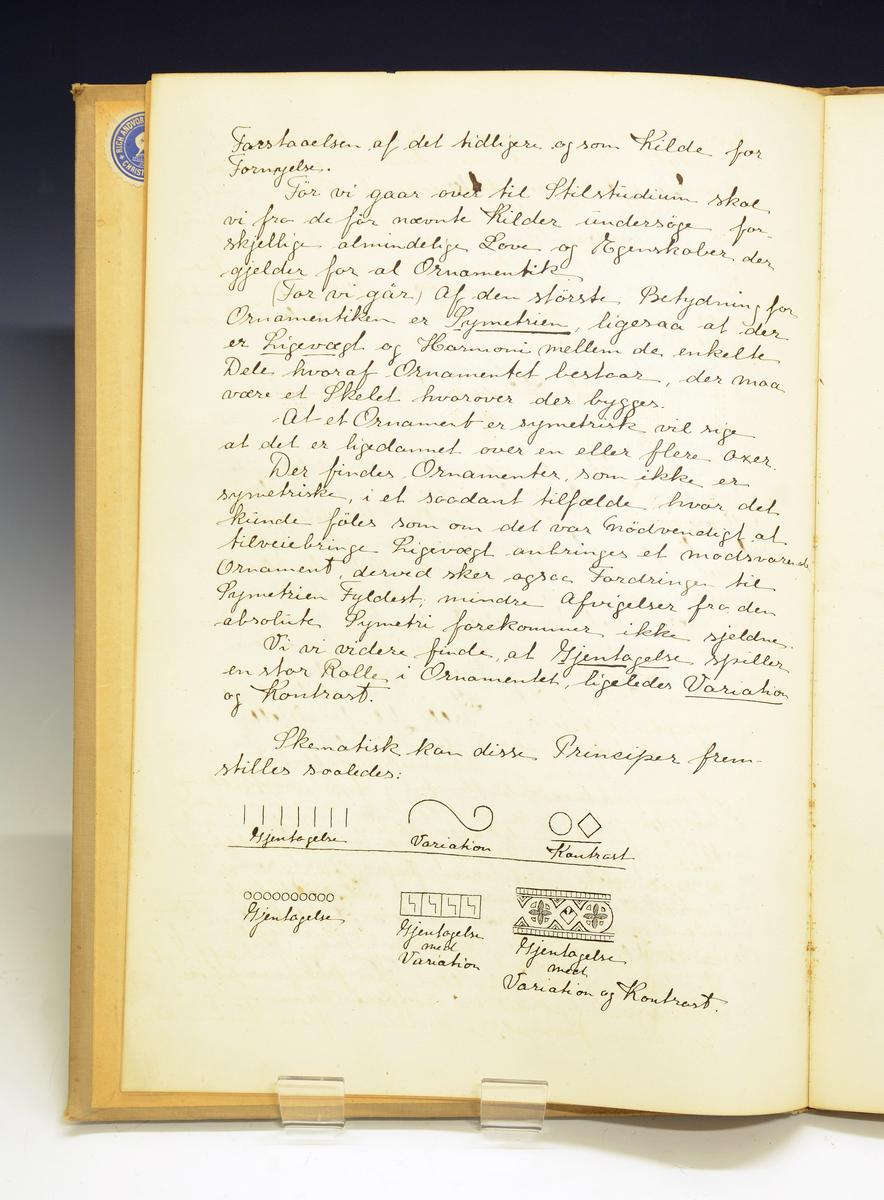 RICH. ANDVOR
CHRIST
Forstaaelsen af det tidligere og som Kilde for
Fornyelse.
För vi gaar over til Stilstudium skal
vi fra de för nævnte Kilder undersöge for-
skjellige almindelige Love og Egenskaber der
gjelder for al Ornamentik
(For vi går) Af den störste Betydning for
Ornamentiken er Symetrien, ligesaa at der
er Ligevægt og Harmoni mellem de enkelte
Dele hvoraf Ornamentet bestaar, der maa
være et Skelet hvorover der bygges.
At et Ornament er symetrisk vil sige
at det er ligedannet over en eller flere Axer.
Der findes Ornamenter, som ikke er
symetriske, i et saadant tilfælde hvor det
kunde föles som om det var nödvendigt at
tilveiebringe Ligevægt anbringes et modsvarende
Ornament, derved sker ogsaa Fordringen til
Symetrien Fyldest, mindre Afvigelser fra den
absolute Symetri forekommer ikke sjelden.
Vi vi videre finde, at Gjentagelse spiller
en stor Rolle i Ornamentet, ligeledes Variation
og Kontrast.
Skematisk kan disse Principer frem-
stilles saaledes:
Gjentagelse Variation Kontrast
Gjentagelse Gjentagelse med Variation Gjentagelse med Variation og Kontrast.